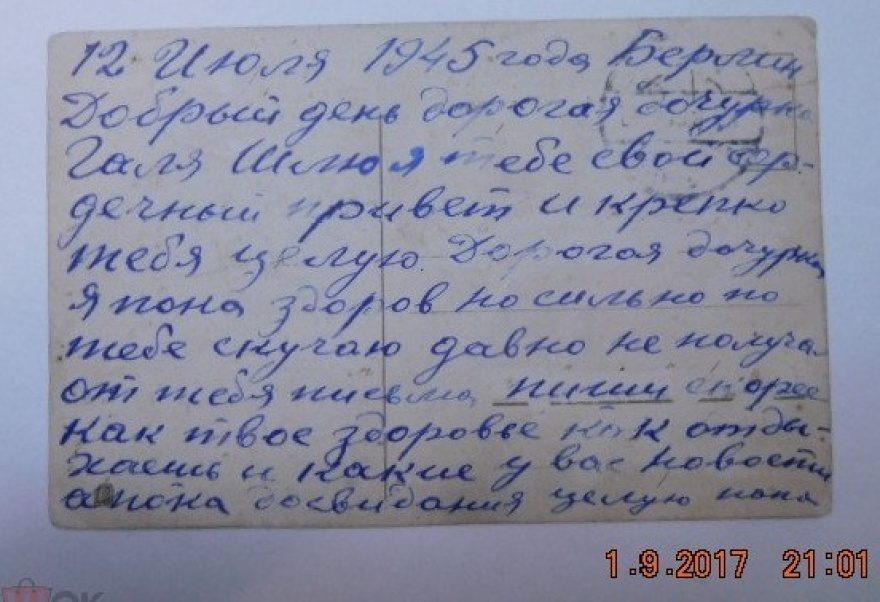 12 Июля 1945 года Берлин
Добрый день дорогая дочурка
Галя Шлю я тебе свой сер-
дечный привет и крепко
тебя целую. Дорогая дочурка
я пока здоров но сильно по
тебе скучаю давно не получал
от тебя письма пиши скорее
как твое здоровье как отды-
хаешь и какие у вас новости
а пока досвидания целую папа
1.9.2017 21:01